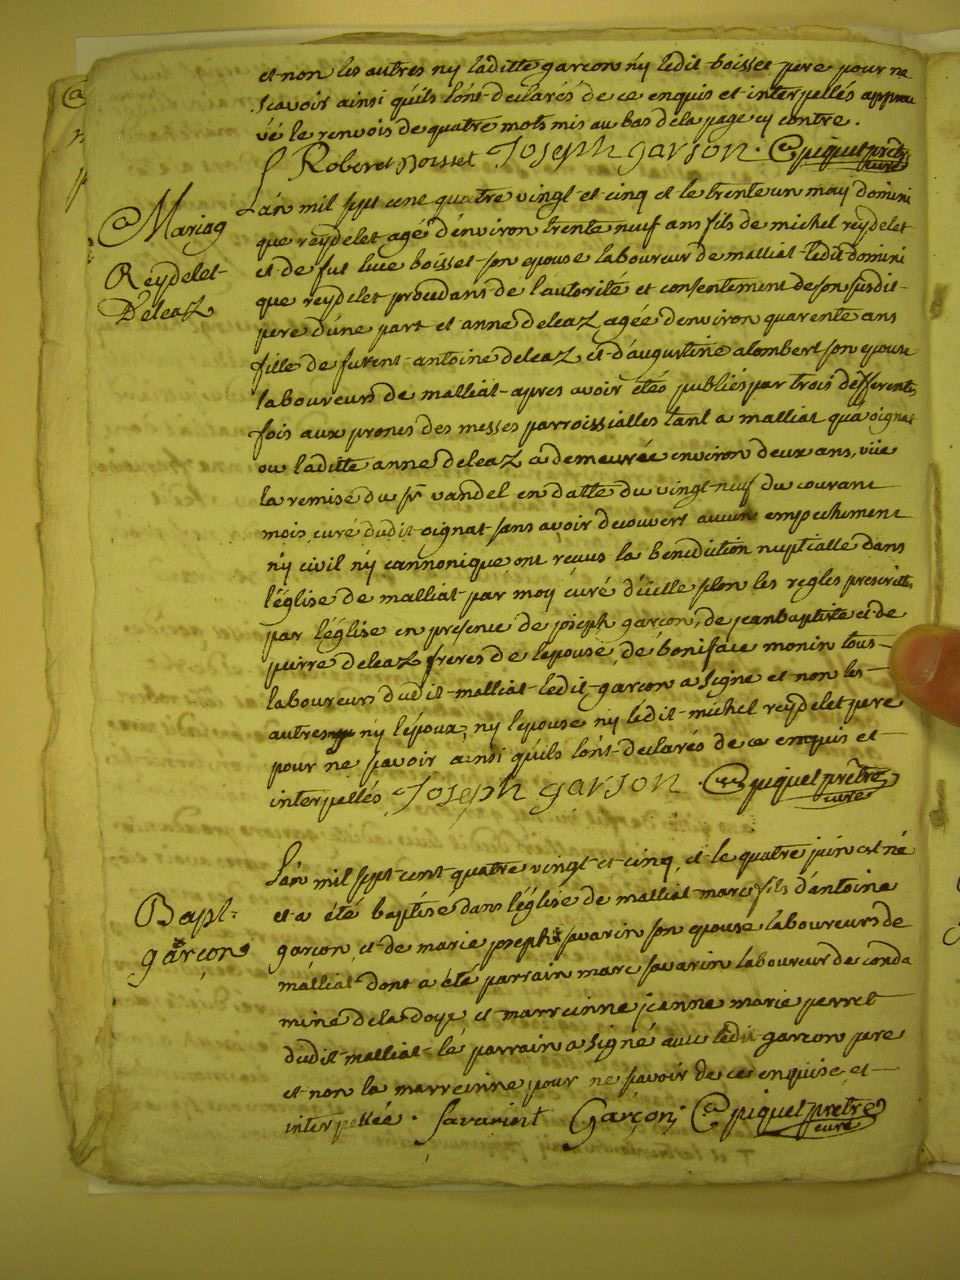 et non les autres ny laditte garçon ny ledit boisset pere pour ne
scavoir ainsi qu'ils l'ont declarés de ce enquis et interpellés approu
vé le renvois de quatre mots mis au bas de la page cy contre.
Robert Boisset Joseph garson. piquet prêtre
curé
Mariag
Reydelet
Deleaz
L'an mil sept cent quatre vingt et cinq et le trente un may domini
que reydelet agé d'environ trente neuf ans fils de michel reydelet
et de fut luce boisset son epouse laboureur de malliat ledit domini
que reydelet procedans de l'autorité et consentement de son susdit
pere d'une part et anne deleaz agée d'environ quarente ans
fille de furent antoine deleaz et d'augustine alombert son epouse
laboureurs de malliat apres avoir étés publiés par trois defferentes
fois aux prones des messes parroissialles tant a malliat qu'a oignat
ou laditte anne deleaz a demeurée environ deux ans, vüe
la remise du sr vandel en datte du vingt neuf du courant
mois curé dudit oignat sans avoir decouvert aucun empechement
ny civil ny cannonique ont recus la benediction nuptialle dans
l'église de malliat par moy curé d'icelle selon les regles prescrittes
par l'église en presence de joseph garçon, de jean baptiste et de
pierre deleaz freres de l'epouse, de boniface monin tous
laboureurs dudit malliat ledit garçon a signé et non les
autres ny l'époux, ny l'epouse ny ledit michel reydelet pere
pour ne scavoir ainsi qu'ils l'ont declarés de ce enquis et
interpellés Joseph garson piquet prêtre
curé
Bapt.
garçon
L'an mil sept cent quatre vingt et cinq et le quatre juin est né
et a été baptisé dans l'église de malliat marc fils d'antoine
garçon et de marie josephe savarin son epouse laboureurs de
malliat dont a été parrain marc savarin laboureur de conda
mine de la doye et marreinne jeanne marie perret
dudit malliat le parrain a signé avec ledit garçon pere
et non la marreinne pour ne scavoir de ce enquise et
interpellée. Savarint Garçon piquet prêtre
curé